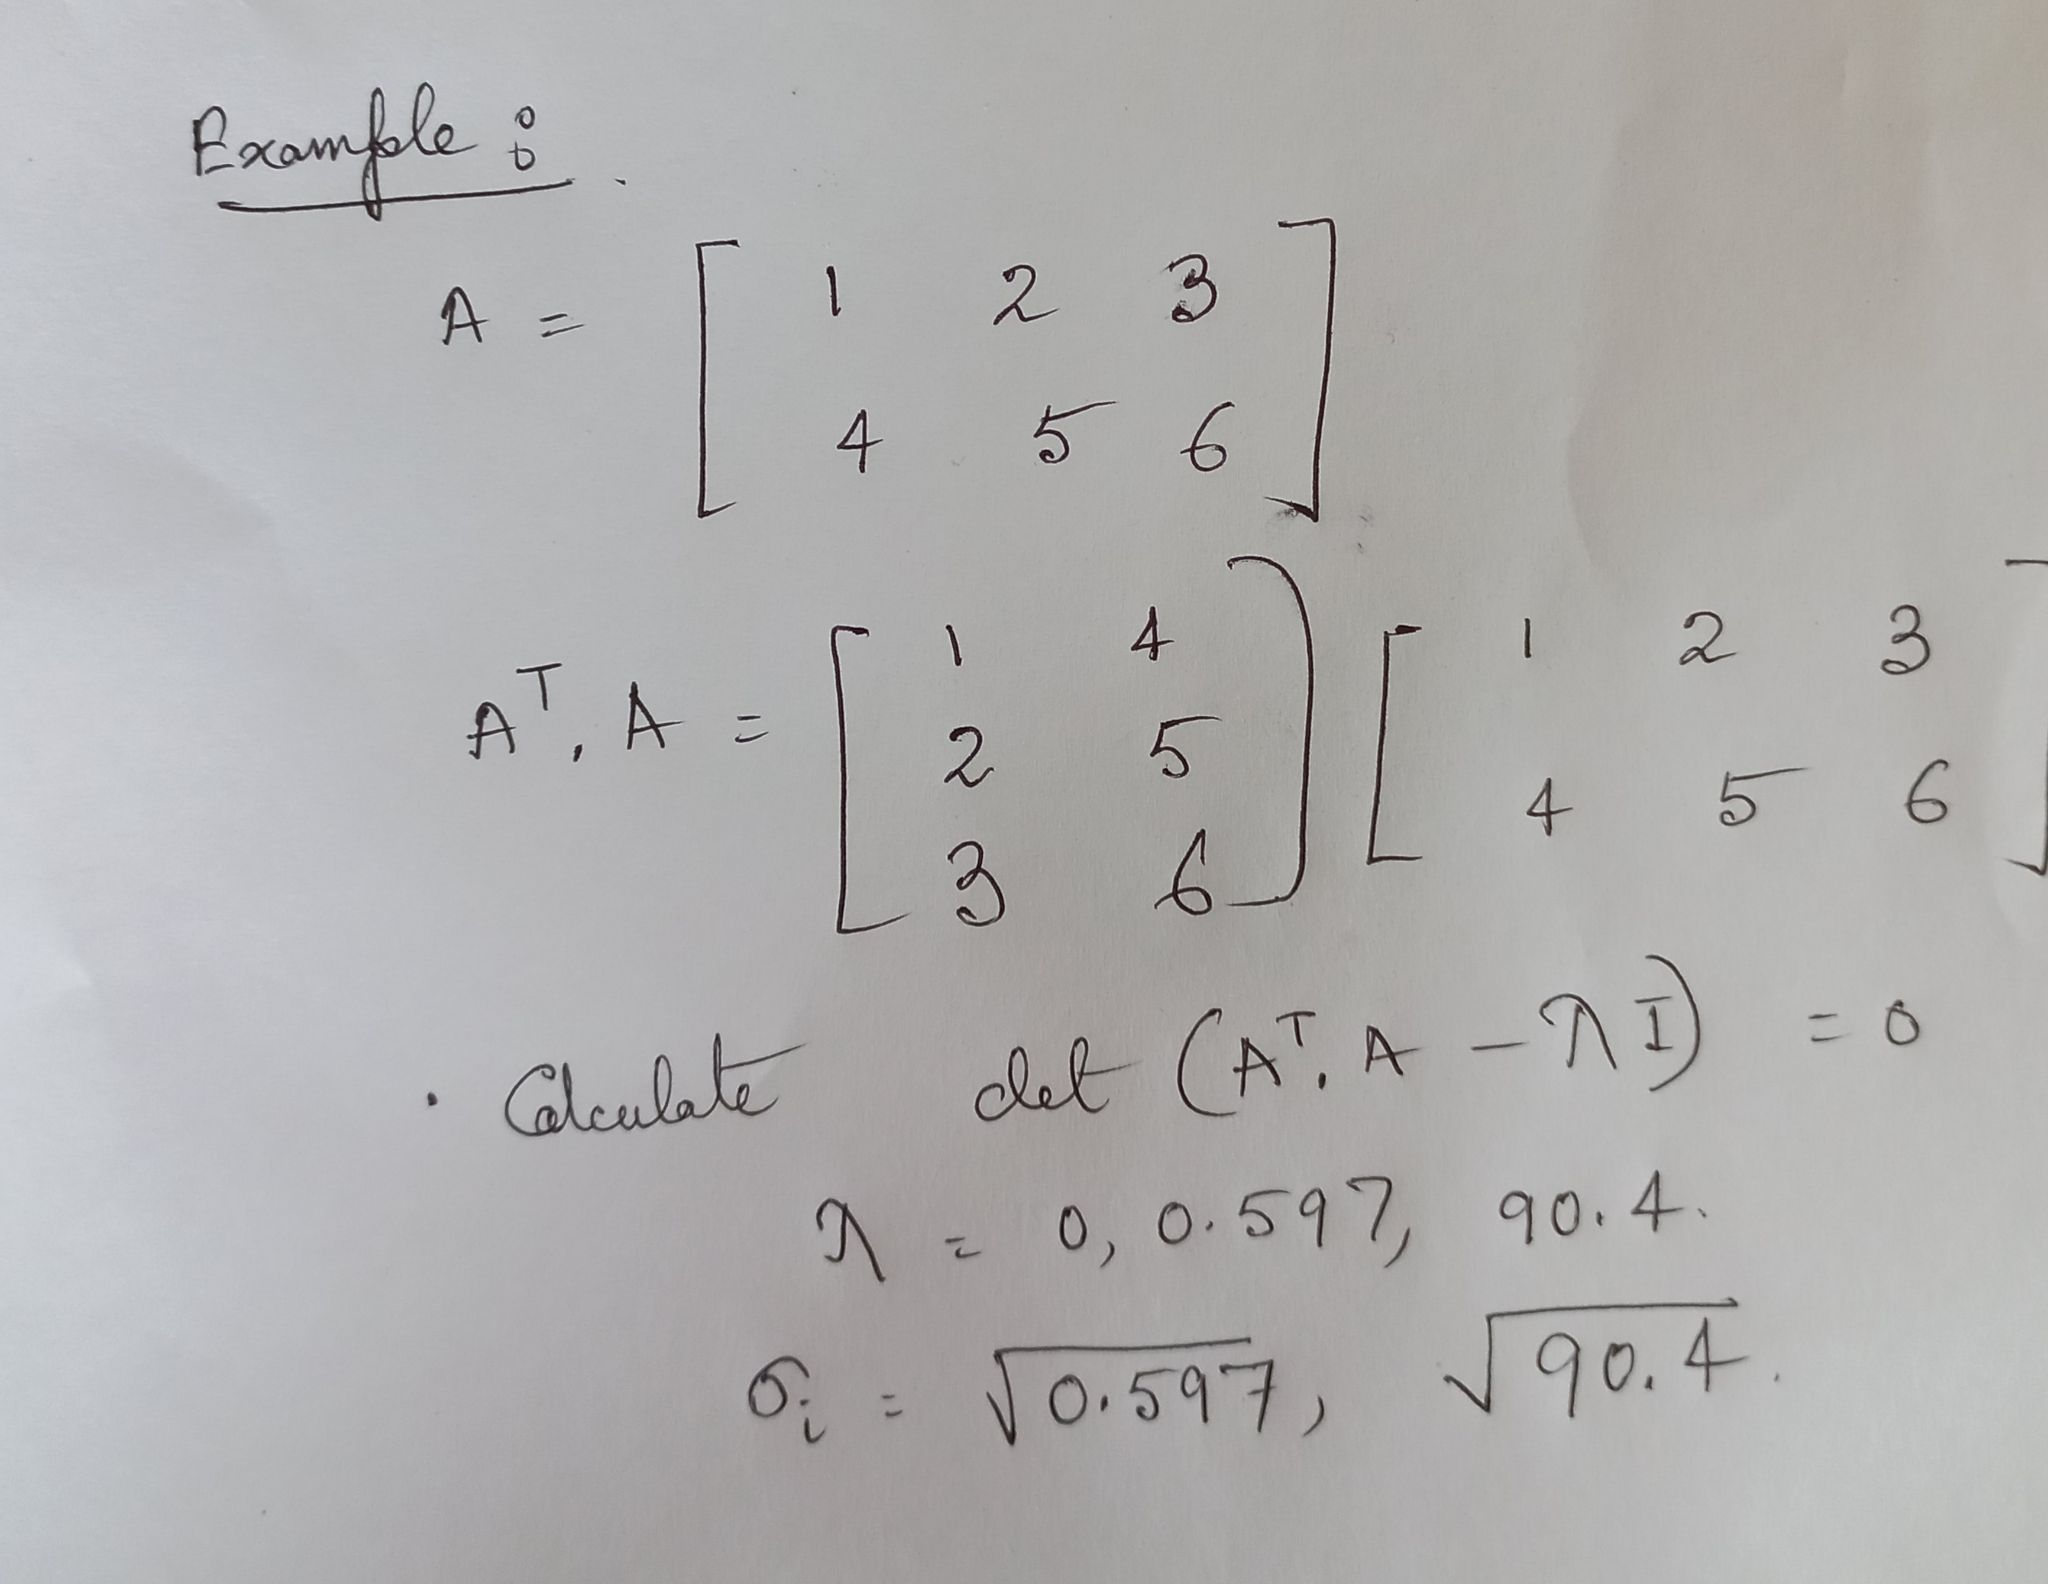 Example :
A = [ 1 2 3
4 5 6 ]
Aᵀ. A = [ 1 4
2 5
3 6 ] [ 1 2 3
4 5 6 ]
. Calculate det (Aᵀ. A - λI) = 0
λ = 0, 0.597, 90.4.
σᵢ = √0.597, √90.4.